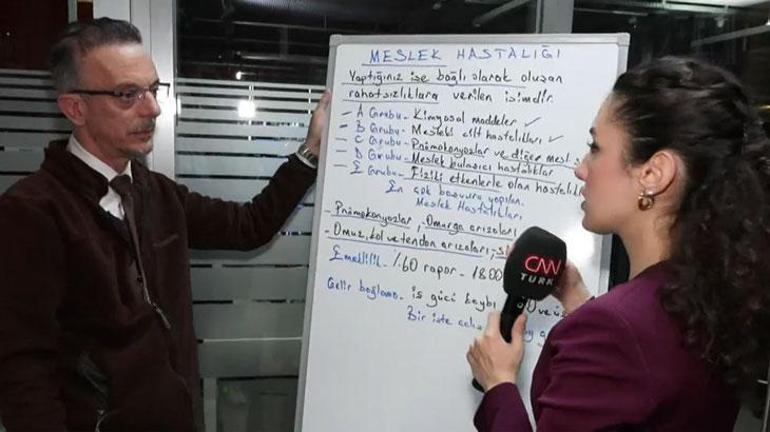 MESLEK HASTALIĞI
Yaptığınız işe bağlı olarak oluşan
rahatsızlıklara verilen isimdir.
- A Grubu - Kimyasal maddeler ✓
- B Grubu - Mesleki cilt hastalıkları ✓
- C Grubu - Pnömokonyozlar ve diğer mesl
- D Grubu - Meslek bulaşıcı hastalıklar
- E Grubu - Fiziki etkenlerle olan hastalık
En çok başvuru yapılan
Meslek Hastalıkları
- Pnömokonyozlar, Omurga arızaları
- Omuz, kol ve tendon arızaları,
Emeklilik - %60 rapor - 1800
Gelir bağlama - iş gücü kaybı ve üs
Bir işte
CNN
TÜRK